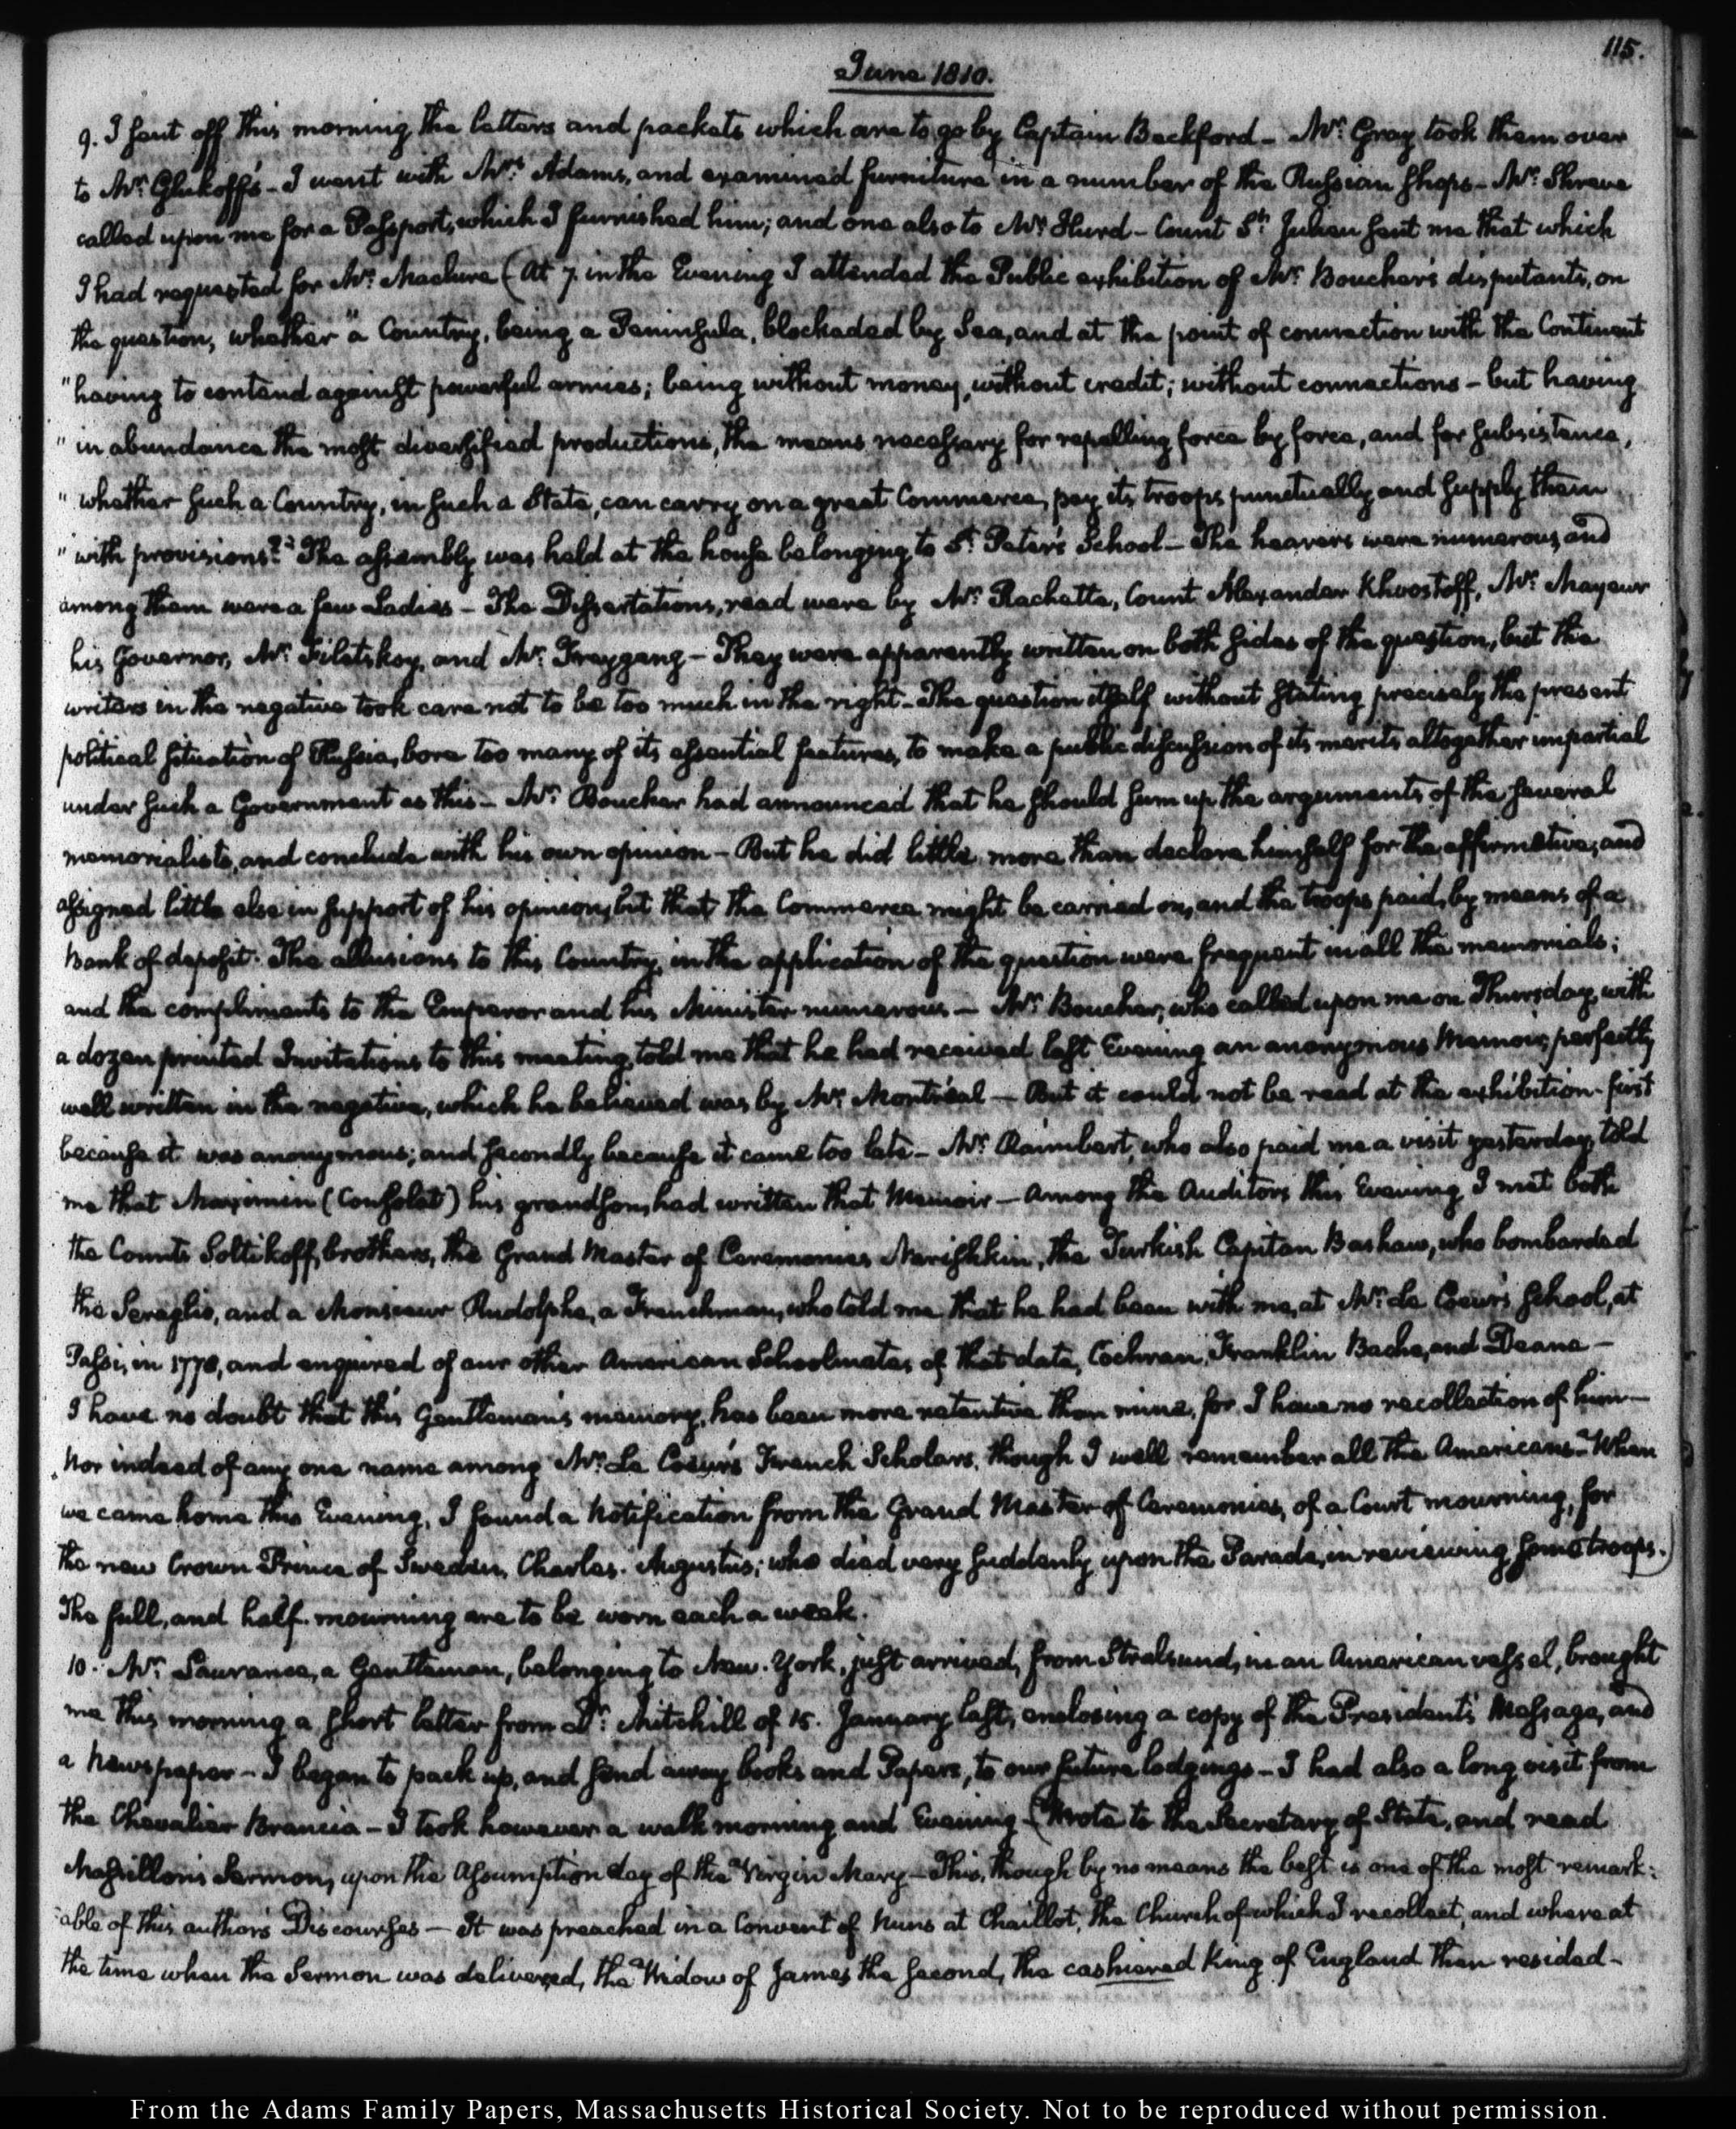 115.
June 1810.
9. I sent off this morning the letters and packets which are to go by Captain Beckford – Mr. Gray took them over
to Mr. Glukoff's – I went with Mrs. Adams, and examined furniture in a number of the Russian shops – Mr. Shreve
called upon me for a Passport, which I furnished him; and one also to Mr. Hurd – Count St. Julien sent me that which
I had requested for Mr. Maclure (At 7. in the Evening I attended the Public exhibition of Mr. Boucher's disputants, on
the question, whether "a Country, being a Peninsula, blockaded by Sea, and at the point of connection with the Continent
"having to contend against powerful armies; being without money, without credit; without connections – but having
"in abundance the most diversified productions, the means necessary for repelling force by force, and for subsistence,
"whether such a Country, in such a State, can carry on a great Commerce, pay its troops punctually and supply them
"with provisions?" The assembly was held at the house belonging to St. Peter's School – The hearers were numerous, and
among them were a few Ladies – The Dissertations, read were by Mr. Rachette, Count Alexander Khvostoff, Mr. Mayeur
his Governor, Mr. Filetskoy, and Mr. Freygang – They were apparently written on both sides of the question, but the
writers in the negative took care not to be too much in the right – The question itself without stating precisely the present
political situation of Russia, bore too many of its essential features, to make a public discussion of its merits altogether impartial
under such a Government as this – Mr. Boucher had announced that he should sum up the arguments of the several
memorialists, and conclude with his own opinion – But he did little more than declare himself for the affirmative; and
assigned little else in support of his opinion, but that the Commerce might be carried on, and the troops paid, by means of a
bank of deposit. The allusions to this Country, in the application of the question were frequent in all the memorials;
and the compliments to the Emperor and his Minister numerous – Mr. Boucher, who called upon me on Thursday, with
a dozen printed Invitations to this meeting, told me that he had received last Evening an anonymous Memoir, perfectly
well written in the negative, which he believed was by Mr. Montréal – But it could not be read at the exhibition – first
because it was anonymous; and secondly because it came too late – Mr. Raimbert, who also paid me a visit yesterday, told
me that Maximin (Consolat) his grandson, had written that Memoir – Among the Auditors this Evening I met both
the Counts Soltikoff, brothers, the Grand Master of Ceremonies Narishkin, the Turkish Capitan Bashaw, who bombarded
the Seraglio, and a Monsieur Rudolphe, a Frenchman, who told me that he had been with me, at Mr. Le Coeur's School, at
Passi, in 1778, and enquired of our other American Schoolmates of that date, Cochran, Franklin Bache, and Deane –
I have no doubt that this Gentleman's memory, has been more retentive than mine, for I have no recollection of him –
Nor indeed of any one name among Mr. Le Coeur's French Scholars, though I well remember all the Americans – When
we came home this Evening, I found a Notification from the Grand Master of Ceremonies, of a Court mourning, for
the new Crown Prince of Sweden, Charles. Augustus; who died very suddenly upon the Parade, in reviewing some troops.)
The full, and half. mourning are to be worn each a week.
10. Mr. Lawrance, a Gentleman, belonging to New. York, just arrived, from Stralsund, in an American vessel, brought
me this morning a short letter from Dr. Mitchill of 15. January last, enclosing a copy of the President's Message, and
a Newspaper – I began to pack up, and send away books and Papers, to our future lodgings – I had also a long visit from
the Chevalier Brancia – I took however a walk morning and Evening – (Wrote to the Secretary of State, and read
Massillon's Sermon, upon the Assumption day of the Virgin Mary – This, though by no means the best is one of the most remark:
able of this author's Discourses – It was preached in a Convent of Nuns at Chaillot, the Church of which I recollect, and where at
the time when the Sermon was delivered, the Widow of James the second, the cashiered King of England then resided –
From the Adams Family Papers, Massachusetts Historical Society. Not to be reproduced without permission.